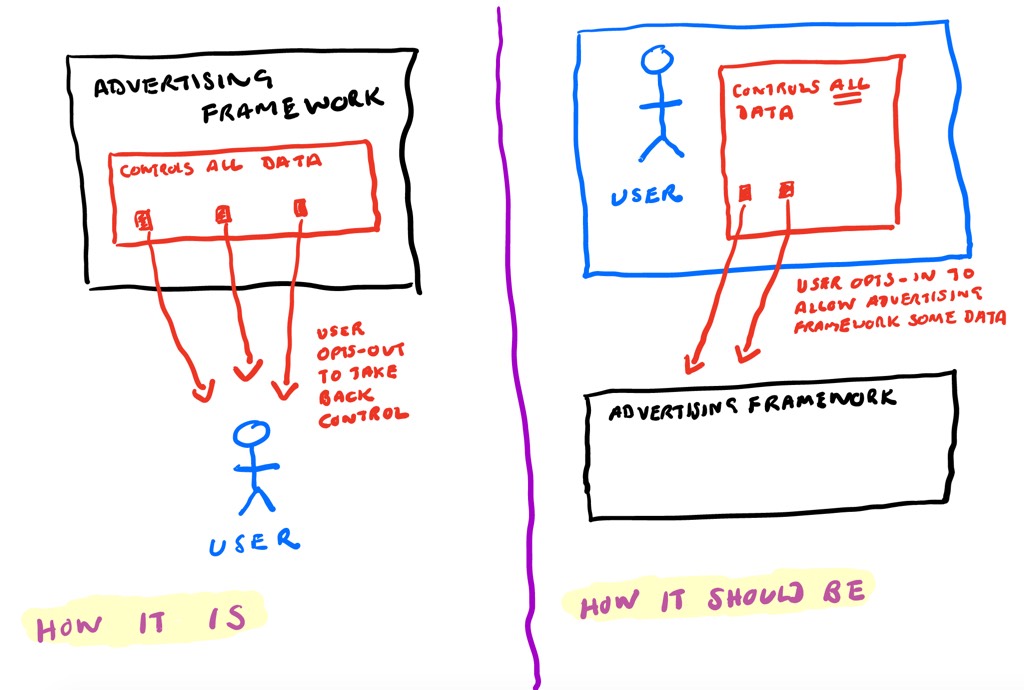 ADVERTISING
FRAMEWORK
CONTROLS ALL DATA
USER
OPTS-OUT
TO TAKE
BACK
CONTROL
USER
HOW IT IS
CONTROLS ALL
DATA
USER
USER OPTS-IN TO
ALLOW ADVERTISING
FRAMEWORK SOME DATA
ADVERTISING FRAMEWORK
HOW IT SHOULD BE